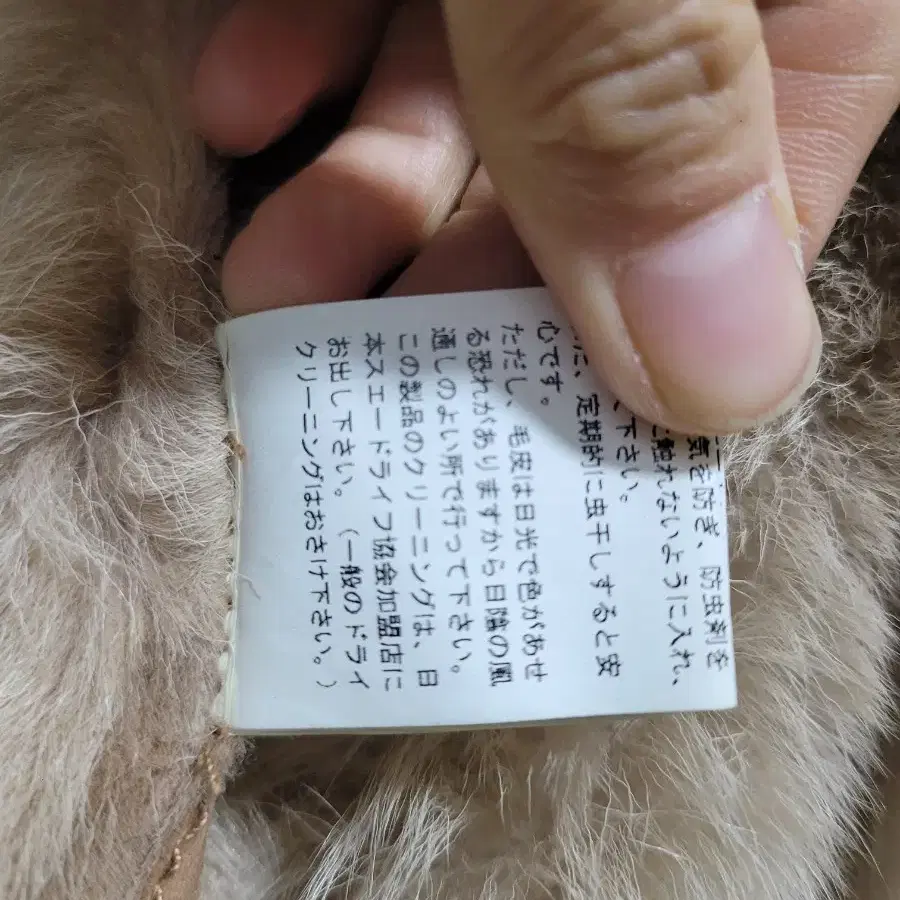 気を防ぎ、防虫剤を
に触れないように入れ、
下さい。
、定期的に虫干しすると安
心です。
ただし、毛皮は日光で色があせ
る恐れがありますから日陰の風
通しのよい所で行って下さい。
この製品のクリーニングは、日
本スエードライフ協会加盟店に
お出し下さい。(一般のドライ
クリーニングはおさけ下さい。)